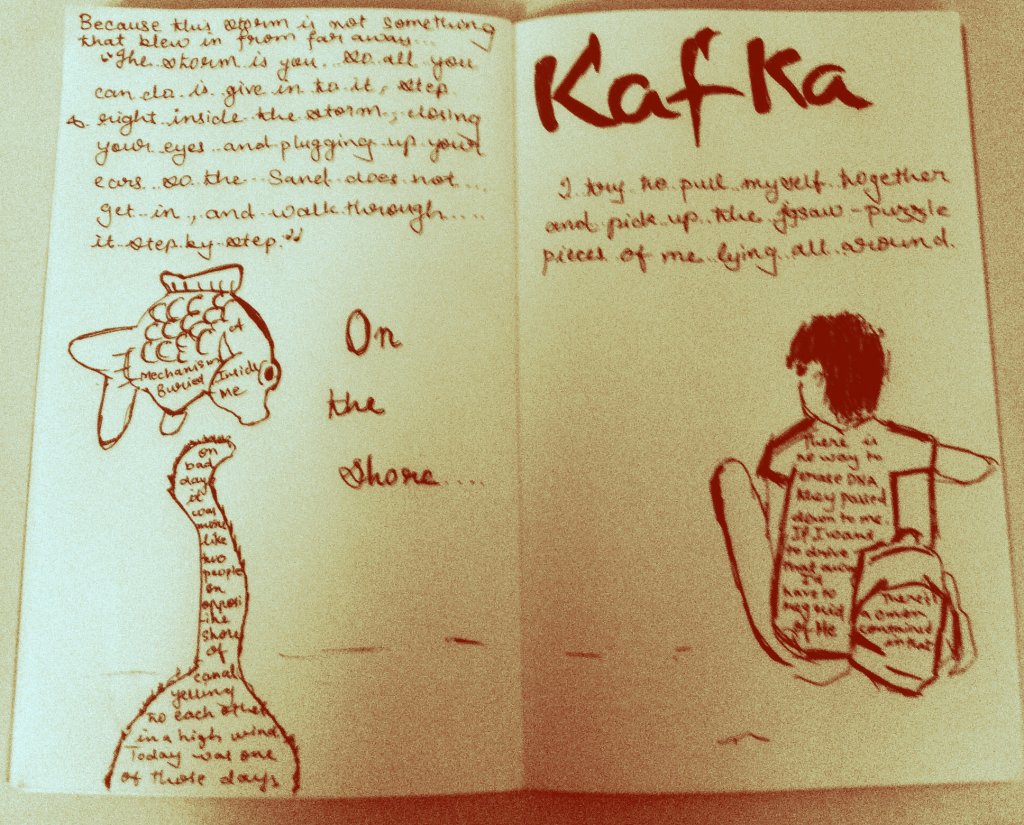 Because this storm is not something
that blew in from far away...
"The storm is you. So all you
can do is give in to it, step
right inside the storm, closing
your eyes and plugging up your
ears so the Sand does not....
get in, and walk through....
it step by step."
A
Mechanism
Buried
Inside
Me
On
the
shore....
on
bad
days
it
was
more
like
two
people
on
opposi
the
shore
of
canal
yelling
to each other
in a high wind
Today was one
of those days
Kafka
I try to pull myself together
and pick up the jigsaw-puzzle
pieces of me lying all around.
There is
no way to
erase DNA
they passed
down to me.
If I want
to drive
that away
I'd
have to
get rid
of Me
There's
a omen
contained
in that